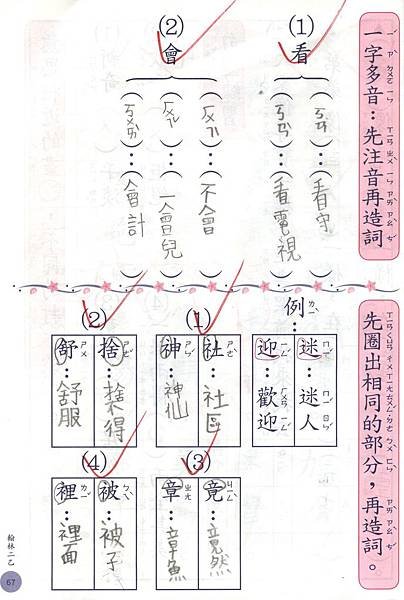 一字多音：先注音再造詞
(1)看
(ㄎㄢ)：(看守)
(ㄎㄢˋ)：(看電視)
(2)會
(ㄏㄨㄟˋ)：(不會)
(ㄏㄨㄟˇ)：(一會兒)
(ㄎㄨㄞˋ)：(會計)
先圈出相同的部分，再造詞。
例：
迷：迷人
迎：歡迎
(1)
社：社區
神：神仙
(2)
捨：捨得
舒：舒服
(3)
竟：竟然
章：章魚
(4)
被：被子
裡：裡面
翰林二乙
67